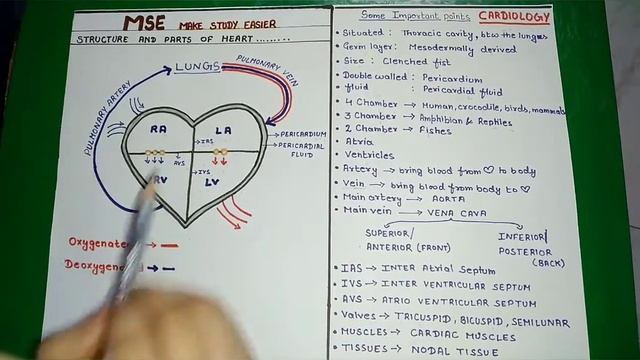 MSE MAKE STUDY EASIER
STRUCTURE AND PARTS OF HEART.........
LUNGS
PULMONARY VEIN
PULMONARY ARTERY
RA
LA
IAS
PERICARDIUM
PERICARDIAL
FLUID
AVS
IVS
RV
LV
Oxygenated
Deoxygen
Some Important points CARDIOLOGY
Situated : Thoracic cavity, btw the lungs
Germ layer: Mesodermally derived
Size : Clenched fist
Double walled : Pericardium
fluid : Pericardial fluid
4 Chamber → Human, crocodile, birds, mammals
3 Chamber → Amphibian & Reptiles
2 Chamber → Fishes
Atria
Ventricles
Artery → bring blood from ♡ to body
Vein → bring blood from body to ♡
Main artery → AORTA
Main vein → VENA CAVA
SUPERIOR/ INFERIOR/
ANTERIOR (FRONT) POSTERIOR
(BACK)
IAS → INTER Atrial Septum
IVS → INTER VENTRICULAR SEPTUM
AVS → ATRIO VENTRICULAR SEPTUM
Valves → TRICUSPID, BICUSPID, SEMILUNAR
MUSCLES → CARDIAC MUSCLES
TISSUES → NODAL TISSUE